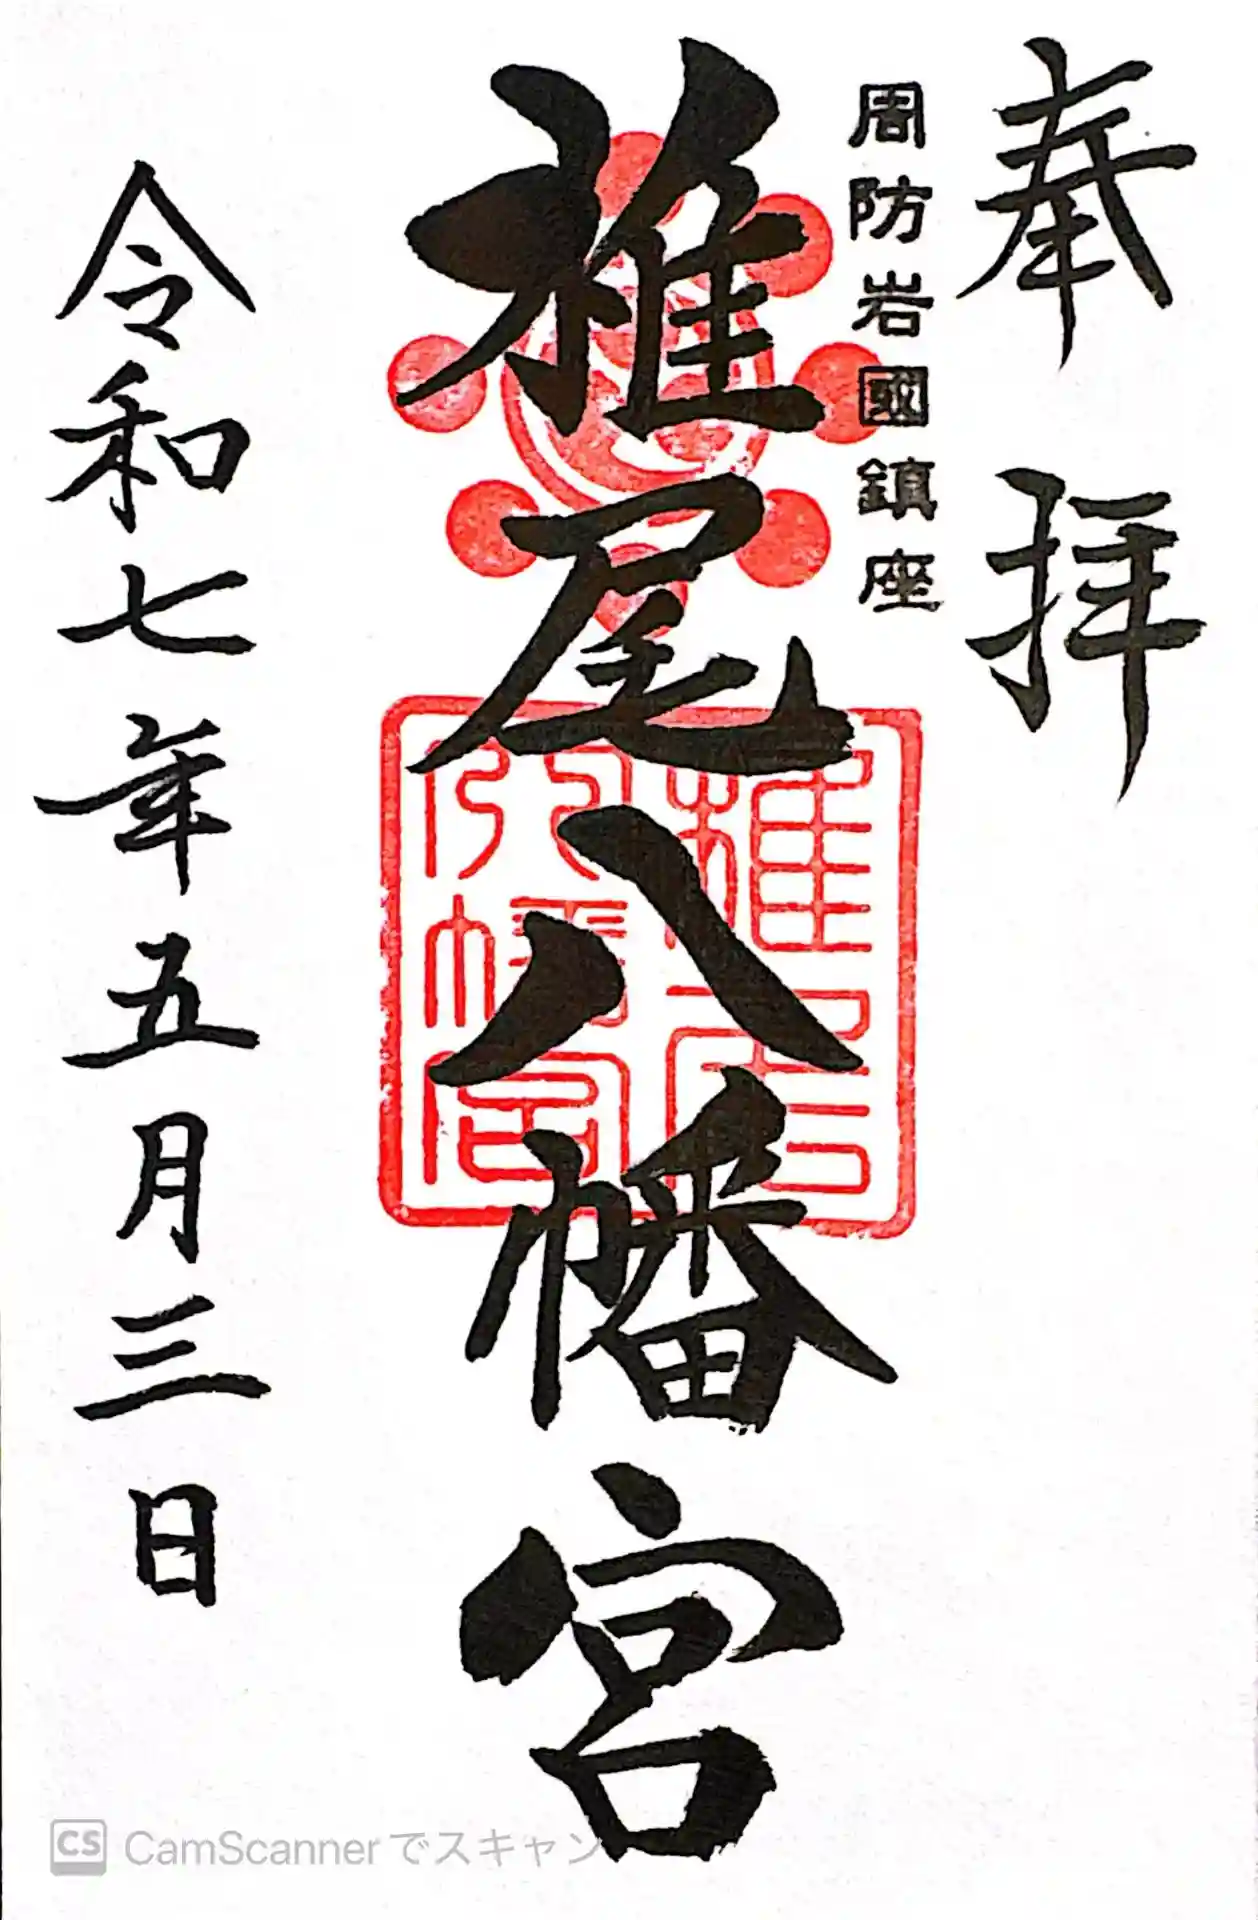 奉拝
周防岩國鎮座
椎尾八幡宮
椎尾
八幡宮
令和七年五月三日
CS CamScannerでスキャン